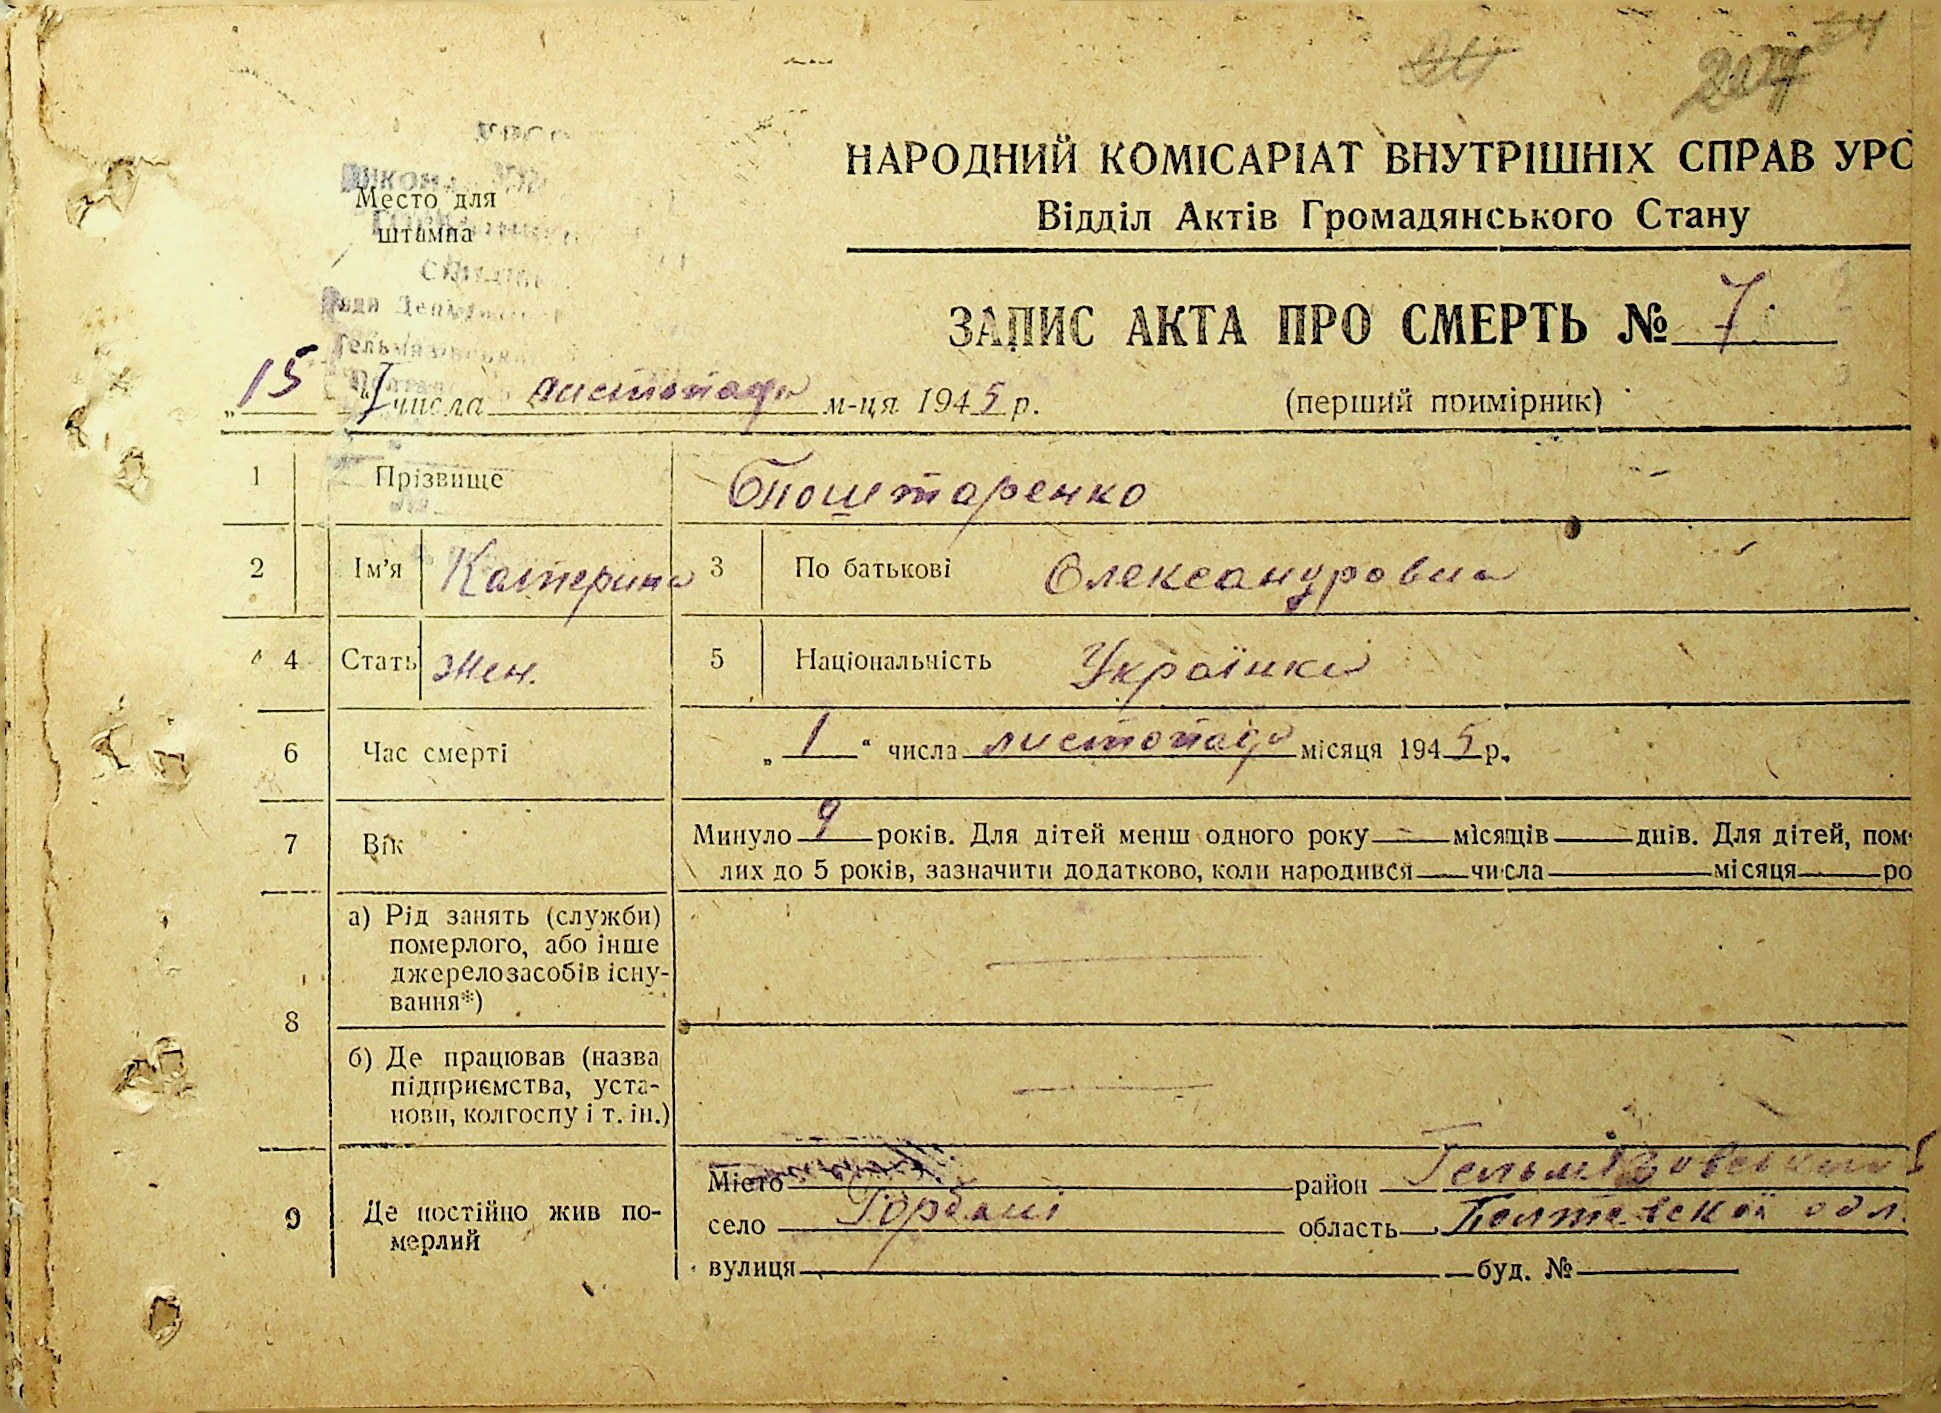 207
НАРОДНИЙ КОМІСАРІАТ ВНУТРІШНІХ СПРАВ УРС
Відділ Актів Громадянського Стану
Место для
штампа
ЗАПИС АКТА ПРО СМЕРТЬ № 7
„15“ числа листопада м-ця 1945 р. (перший примірник)
1 Прізвище Поштаренко
2 Ім'я Катерина 3 По батькові Олександровна
4 Стать Жен. 5 Національність Українка
6 Час смерті „1“ числа листопада місяця 1945 р.
7 Вік Минуло 9 років. Для дітей менш одного року — місяців — днів. Для дітей, пом-
лих до 5 років, зазначити додатково, коли народився — числа — місяця — ро
8 а) Рід занять (служби)
померлого, або інше
джерело засобів існу-
вання*)
б) Де працював (назва
підприємства, уста-
нови, колгоспу і т. ін.)
9 Де постійно жив по-
мерлий
Місто район Гельмязовський
село Горбані область Полтавской обл.
вулиця буд. №